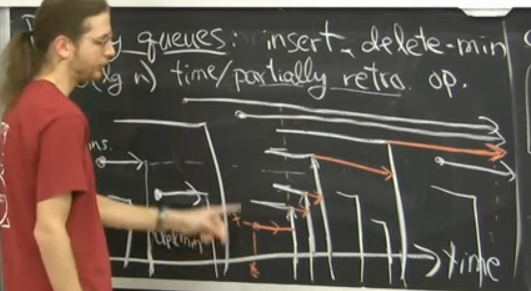 queues: insert, delete-min
(lg n) time/partially retro. op.
ins.
time